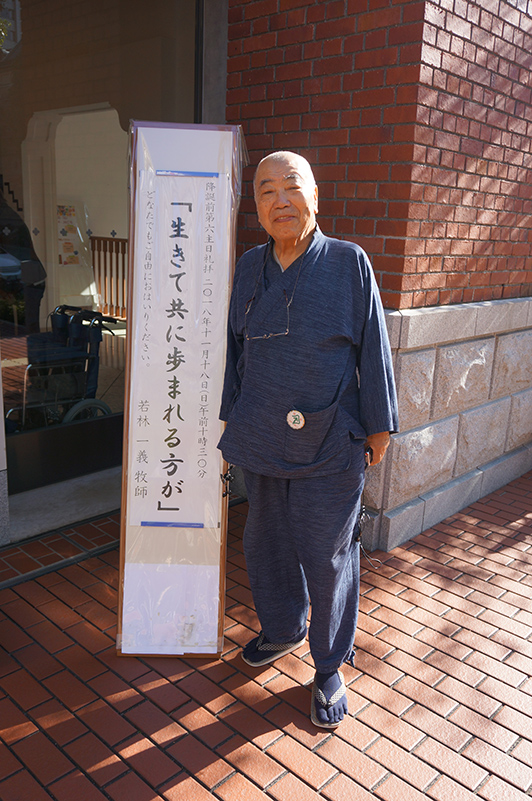 降誕前第六主日礼拝 二〇一八年十一月十八日(日)午前十時三〇分
「生きて共に歩まれる方が」
どなたでもご自由におはいりください。
若林 一義 牧師